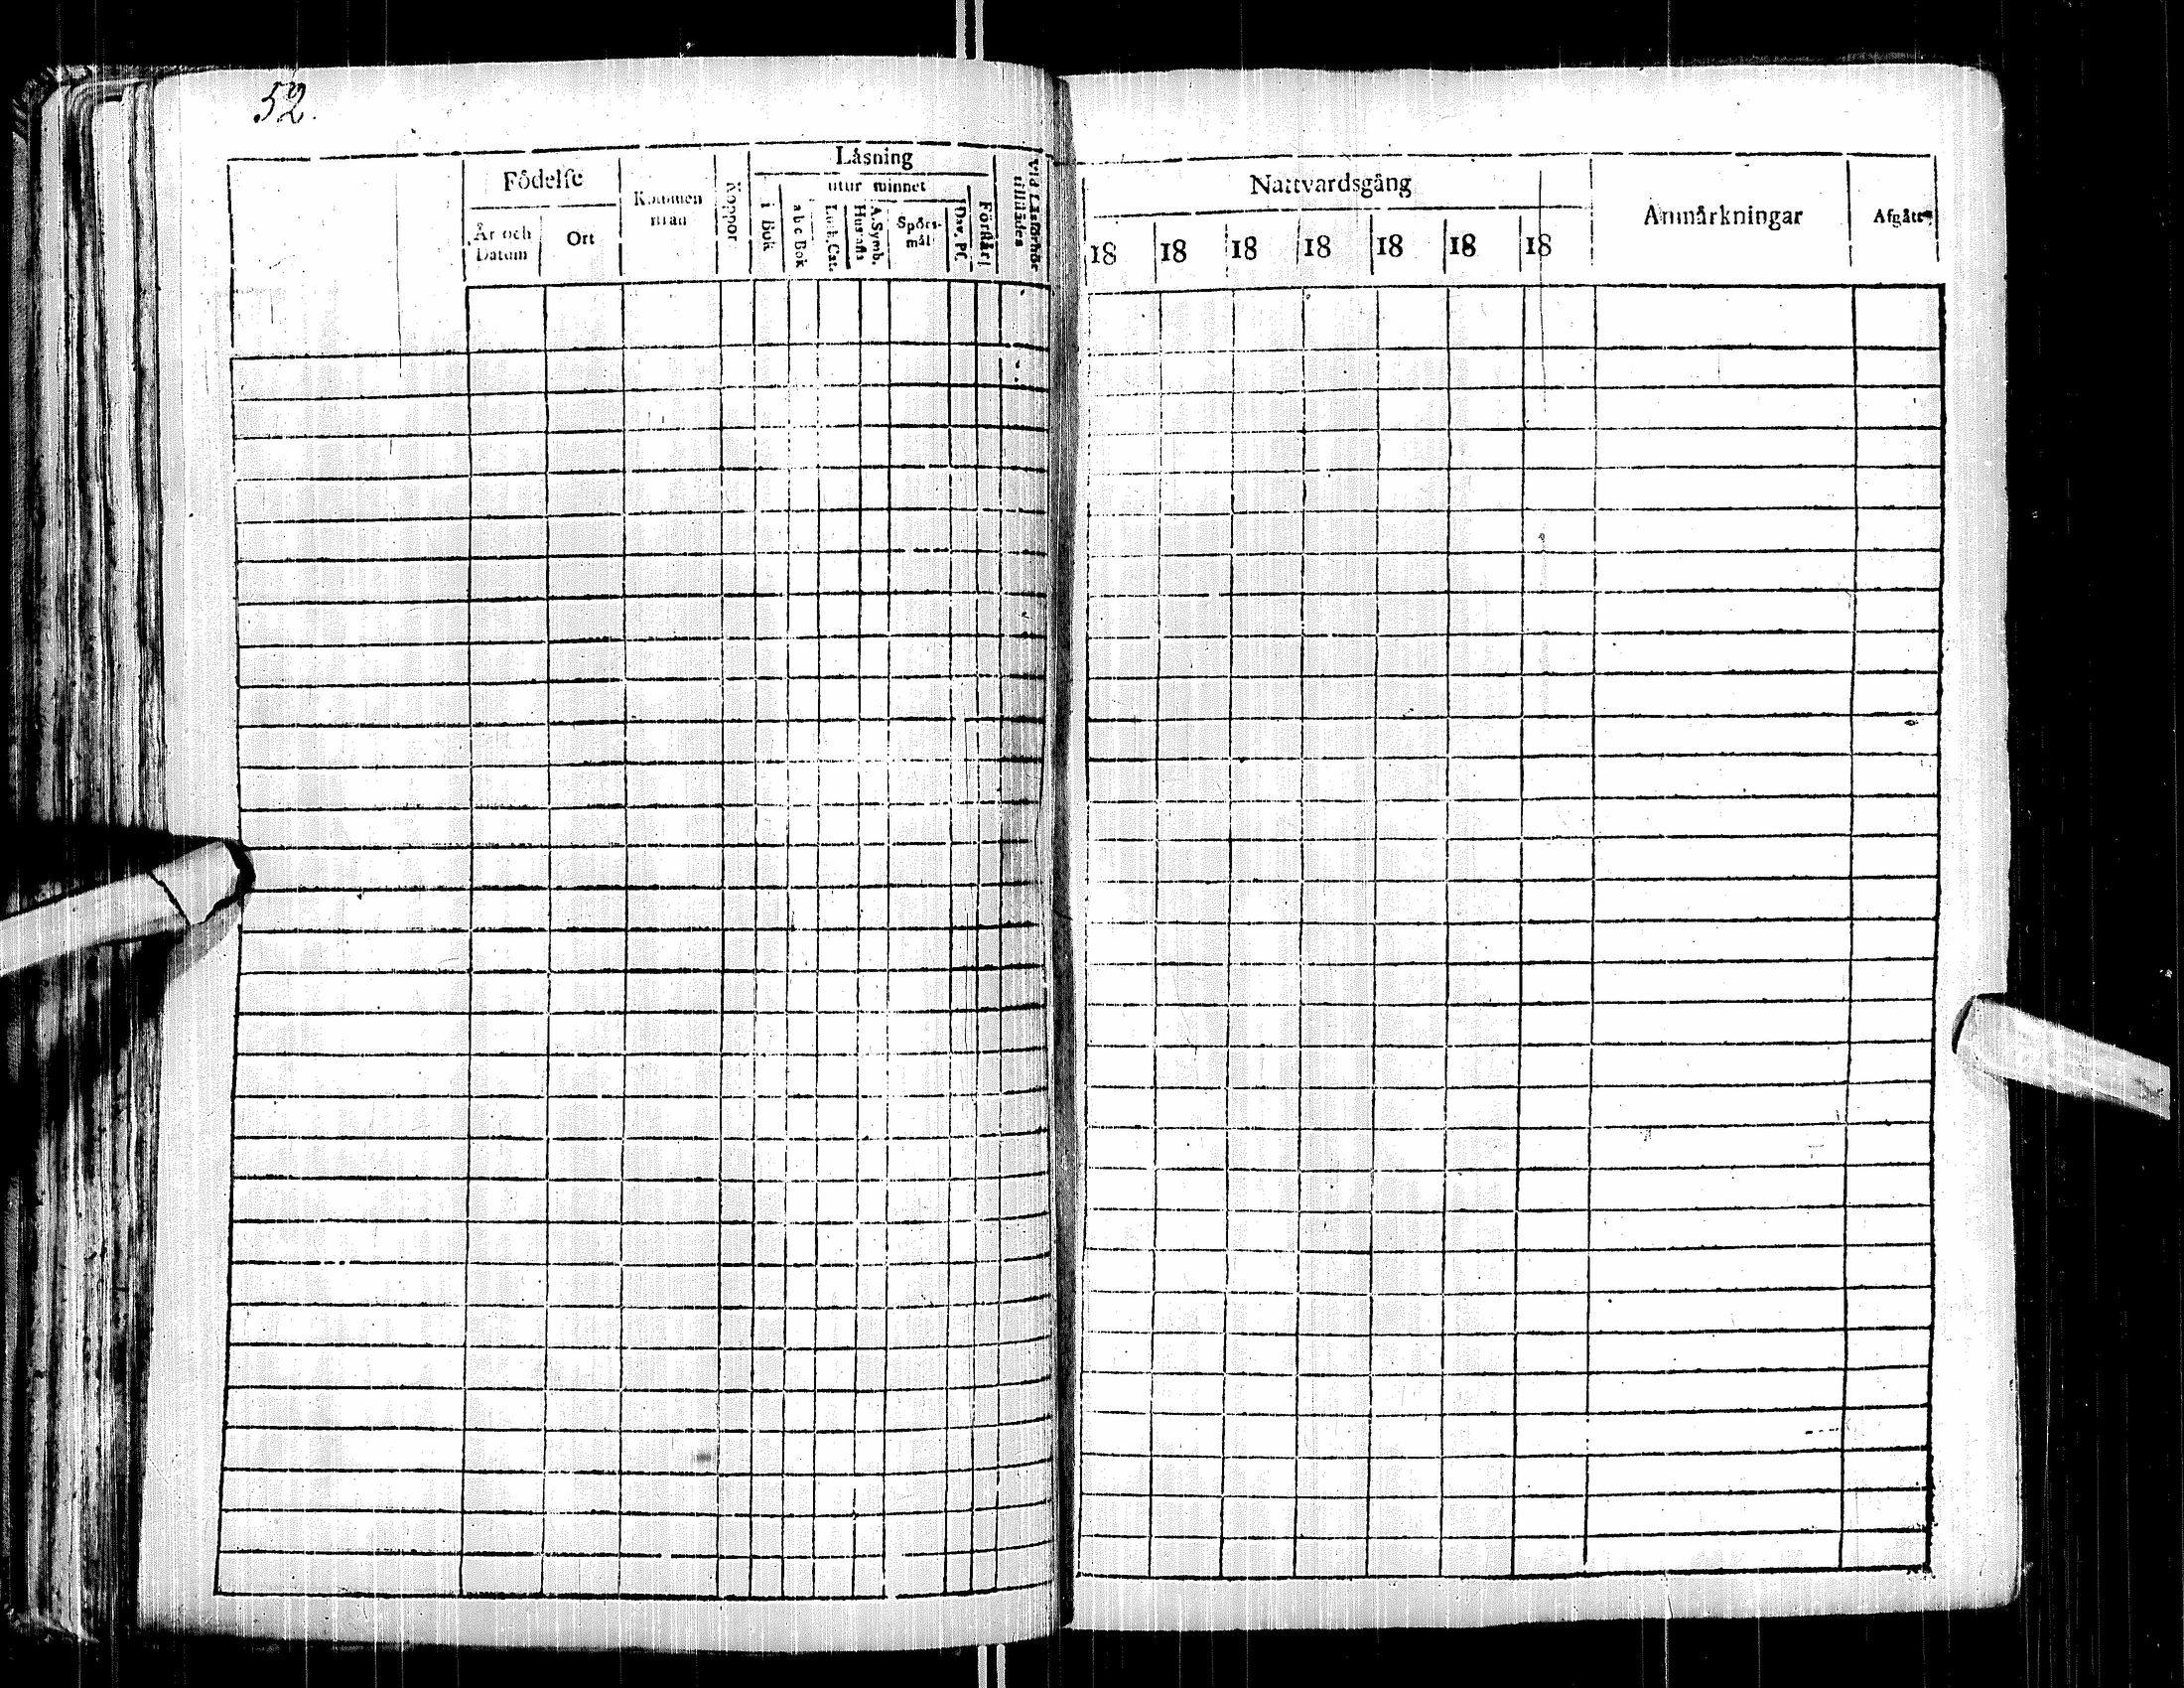 52.
Födelse
År och Datum
Ort
Kommen ifrån
Koppor
Läsning
i Bok
utur minnet
a b c Bok
Luth. Cat.
Hustafla
A. Symb.
Spörs-mål
Dav. Ps.
Förstår
Vid Läsförhör tillstädes
Nattvardsgång
18 18 18 18 18 18 18
Anmärkningar
Afgått